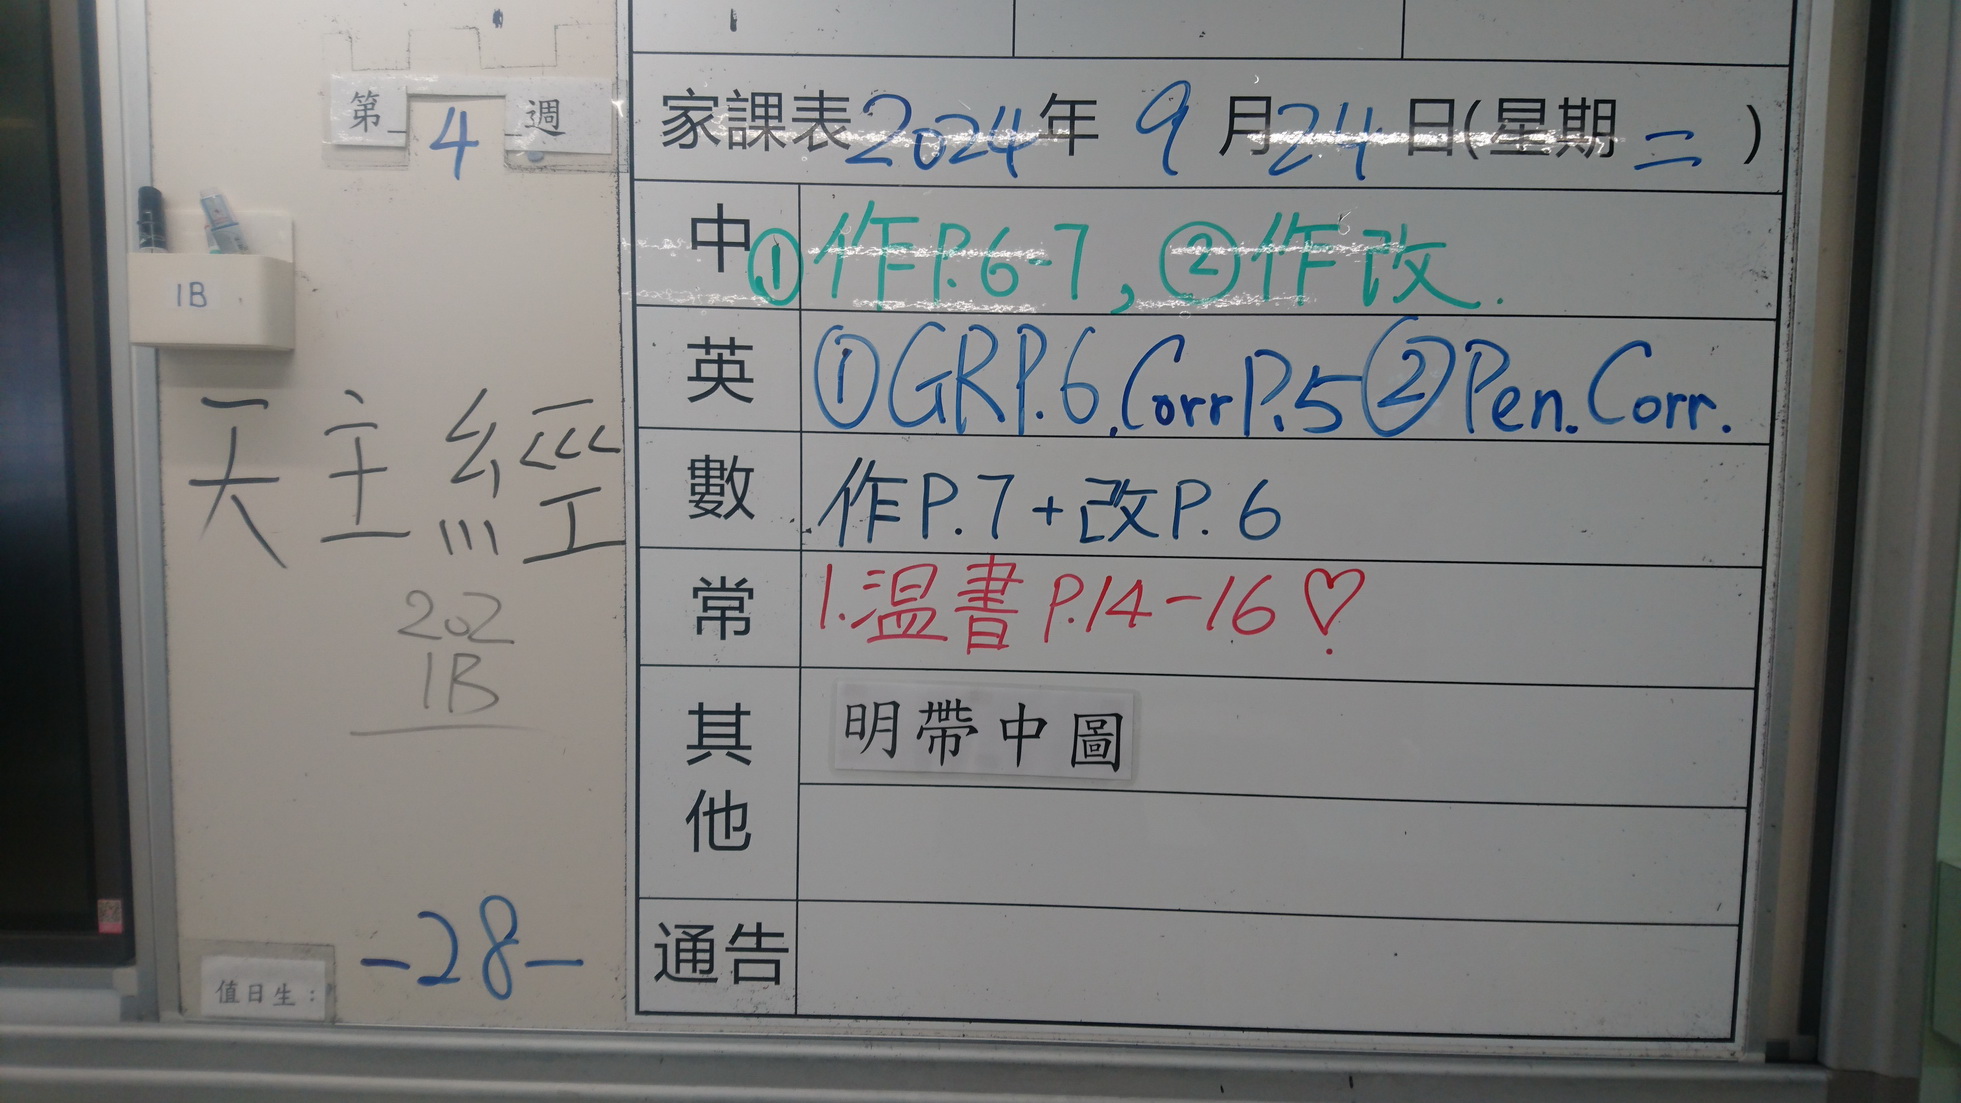 第 4 週
1B
天主經
202
1B
-28-
值日生：
家課表2024年 9月24日(星期二)
中 ①作P.6-7, ②作改.
英 ①GRP.6, Corr P.5 ②Pen. Corr.
數 作P.7+改P.6
常 1.温書P.14-16♡
其他 明帶中圖
通告